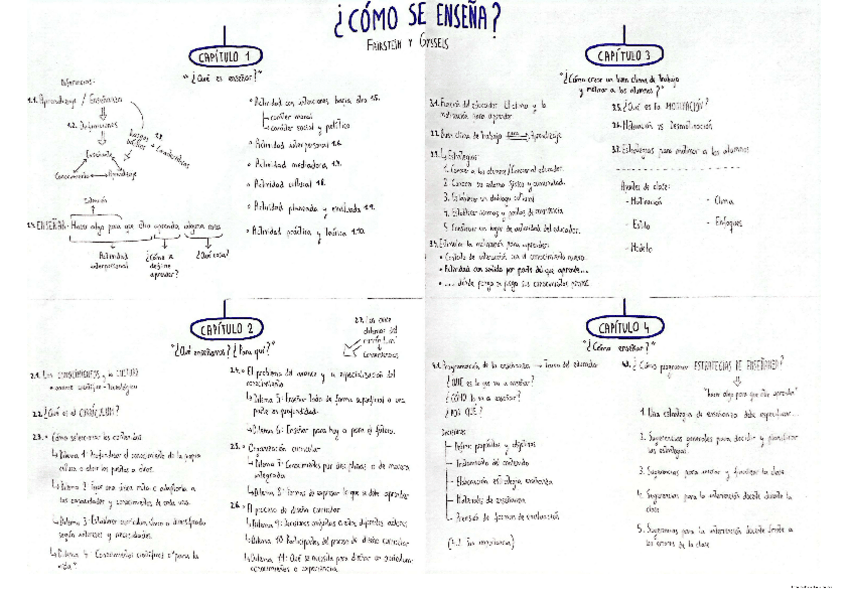 ¿CÓMO SE ENSEÑA?
FAIRSTEIN Y GYSSELS
CAPÍTULO 1
"¿Qué es enseñar?"
Diferencias:
1.1. Aprendizaje / Enseñanza
1.2. Definiciones
1.3.
Enseñante
Conocimiento
Aprendizaje
1.4. ENSEÑAR: Hacer algo para que otro aprenda
Actividad
interpersonal
¿Cómo se
define
aprender?
¿Qué cosa?
• Actividad con intenciones hacia otro 1.5.
carácter moral
carácter social y político
• Actividad interpersonal 1.6.
• Actividad mediadora 1.7.
• Actividad cultural 1.8.
• Actividad planeada y evaluada 1.9.
• Actividad práctica y teórica 1.10.
CAPÍTULO 3
"¿Cómo crear un buen clima de trabajo
y motivar a los alumnos?"
3.1. Función del educador: El clima y la
motivación para aprender
3.2. Buen clima de trabajo para Aprendizaje
3.3. Estrategias
1. Conocer a los alumnos/Conocer al educador.
2. Conocer su entorno físico y comunidad.
3. Establecer un diálogo cultural
4. Establecer normas y pautas de convivencia.
5. Construir un lugar de autoridad del educador.
3.4. Estimular la motivación para aprender:
• Contexto de interacción con el conocimiento nuevo.
• Actividad con sentido por parte del que aprende...
• ... donde ponga en juego sus conocimientos previos.
3.5. ¿Qué es la MOTIVACIÓN?
3.6. Motivación vs Desmotivación
3.7. Estrategias para motivar a los alumnos
Apuntes de clase:
- Motivación
- Clima
- Estilo
- Enfoques
- Modelo
CAPÍTULO 2
"¿Qué enseñamos? ¿Para qué?"
2.1. Los CONOCIMIENTOS y la CULTURA
• avance científico-tecnológico
2.2. ¿Qué es el CURRÍCULUM?
2.3. • Cómo seleccionar los contenidos
Dilema 1: Profundizar el conocimiento de la propia
cultura o abrir las puertas a otras.
Dilema 2:
las capacidades y conocimientos de cada uno.
Dilema 3: Establecer currículum único o diversificado
según intereses y necesidades.
Dilema 4: Conocimientos científicos o "para la
vida"
2.4. • El problema del avance y la especialización del
conocimiento
Dilema 5: Enseñar todo de forma superficial o una
parte en profundidad.
Dilema 6: Enseñar para hoy o para el futuro.
2.5. • Organización curricular
Dilema 7: Conocimientos por disciplinas o de manera
integrada
Dilema 8: Formas de expresar lo que se debe aprender
2.6. • El proceso de diseño curricular
Dilema 9: Decisiones conjuntas o entre diferentes actores
Dilema 10: Participantes del proceso de diseño curricular
Dilema 11: Qué se necesita para diseñar un currículum:
conocimientos o experiencia.
2.7. Los
CAPÍTULO 4
"¿Cómo enseñar?"
4.1. Programación de la enseñanza → Tarea del educador
¿QUÉ es lo que va a enseñar?
¿CÓMO lo va a enseñar?
¿POR QUÉ?
Decisiones
Definir propósitos y objetivos
Ordenamiento del contenido
Elaboración estrategia enseñanza
Materiales de enseñanza
Previsión de formas de evaluación
¿Cómo programar ESTRATEGIAS DE ENSEÑANZA?
"hacer algo para que otro aprenda"
1. Una estrategia de enseñanza debe especificar...
2. Sugerencias generales para decidir y planificar
las estrategias
3. Sugerencias para iniciar y finalizar la clase
4. Sugerencias para la intervención docente durante la
clase
5. Sugerencias para la intervención docente frente a
los errores de la clase